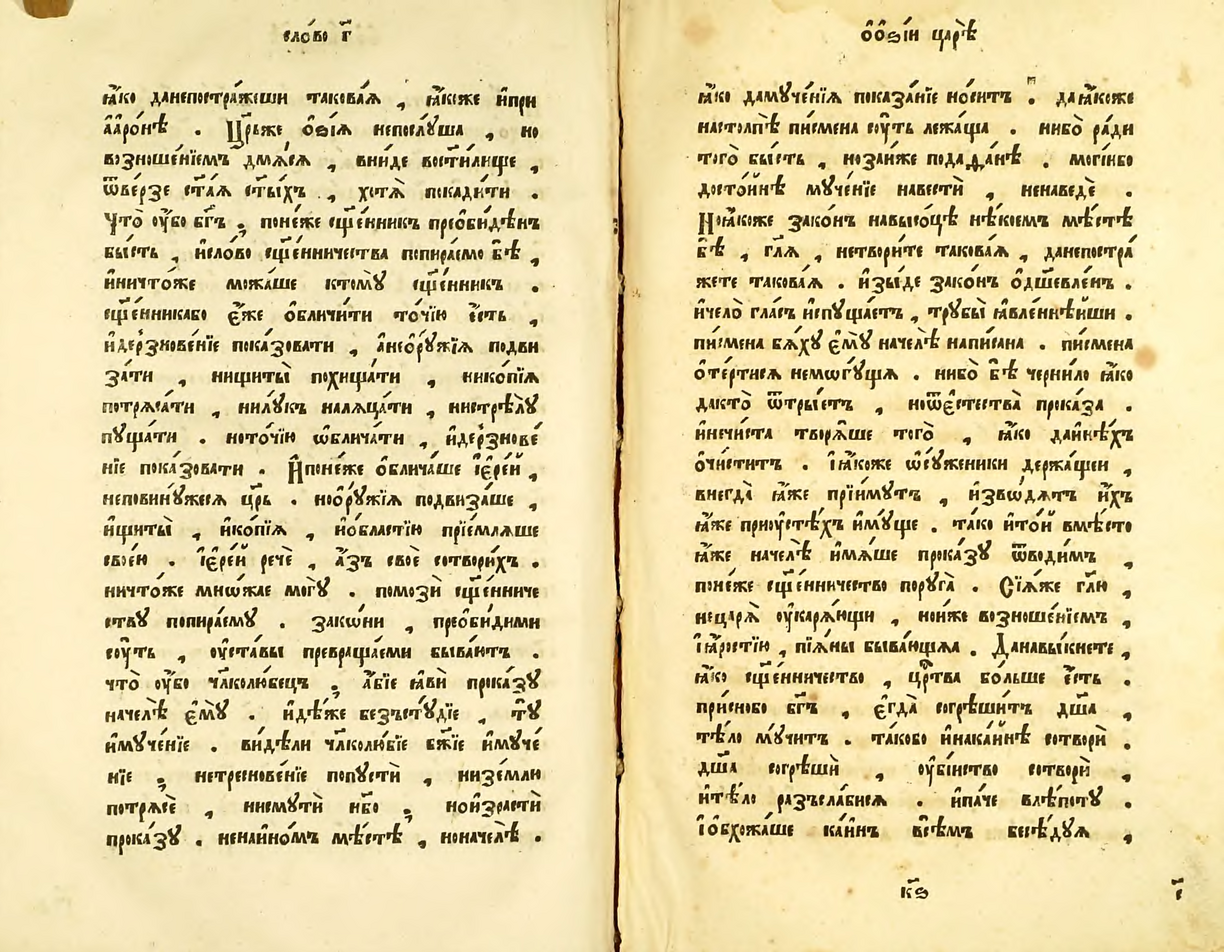 сло́во г҃
ꙗ҆́ко данепостра́жеши такова́ѧ , ꙗ҆́коже и҆при
а҆аро́нѣ . Цр҃ьже ѻ҆зі́ѧ непослꙋ́ша , но
возноше́нїемъ дмѧ́сѧ , вни́де вости́лище ,
ѿве́рзе ст҃а́ѧ ст҃ы́хъ , хотѧ̀ покади́ти .
Что̀ ᲂу҆́бо бг҃ъ , поне́же сщ҃е́нникъ преѻ҆би́дѣнъ
бы́сть , и҆сло́во сщ҃е́нничества попира́емо бѣ̀ ,
и҆ничто́же можа́ше ктомꙋ̀ сщ҃е́нникъ .
сщ҃е́нникабо є҆́же ѻ҆бличи́ти то́чїю є҆́сть ,
и҆дерзнове́нїе показова́ти , а҆неѻ҆рꙋ́жїѧ подви
за́ти , нищиты̀ похища́ти , никѡпїѧ̀
потрѧса́ти , нилꙋ́къ налѧца́ти , нистрѣлꙋ̀
пꙋща́ти . ното́чїю ѡ҆блича́ти , и҆дерзнове́
нїе показова́ти . И҆поне́же ѻ҆блича́ше і҆ере́й ,
неповинꙋ́жесѧ цр҃ь . ноѻ҆рꙋ́жїѧ подвиза́ше ,
и҆щиты̀ , и҆ко́пїѧ , и҆ѻ҆бла́стїю прїе́млѧше
свое́ю . і҆ере́й речѐ , а҆́зъ своѐ сотвори́хъ .
ничто́же мно́жае могꙋ̀ . помозѝ сщ҃е́нниче
ствꙋ попира́емꙋ . зако́ни , преѻ҆би́дими
сꙋ́ть , ᲂу҆ста́вы превраща́еми быва́ютъ .
что̀ ᲂу҆́бо чл҃колю́бецъ , а҆́бїе ꙗ҆вѝ прока́зꙋ
начелѣ̀ є҆мꙋ̀ . и҆дѣ́же безъстꙋ́дїе , тꙋ̀
и҆мꙋче́нїе . ви́дѣли чл҃колю́бїе бж҃їе и҆мꙋче́
нїе , нетрѧснове́нїе попꙋстѝ , низе́мли
потрѧсѐ , нисмꙋтѝ нб҃о , ноизрастѝ
прока́зꙋ . нена́и҆номъ мѣ́стѣ , ноначелѣ̀ .
ѻ҆ѻ҆зі́и царѣ̀
ꙗ҆́ко дамꙋче́нїѧ показа́нїе но́ситъ . даꙗ҆́коже
настолпѣ̀ писмена сꙋ́ть лежа́ща . нибо̀ ра́ди
того̀ бы́сть , нозане́же пода́ данѣ . могі́ибо
досто́йнѣ мꙋче́нїе навестѝ , ненаведѐ .
Ноꙗ҆́коже зако́нъ навысо́цѣ нѣ́коемъ мѣ́стѣ
бѣ̀ , гл҃ѧ , нетвори́те такова́ѧ , данепостра́
жете такова́ѧ . и҆зы́де зако́нъ ѻ҆дш҃евле́нъ .
и҆чело̀ гла́съ и҆спꙋща́етъ , трꙋбы̀ ꙗ҆́вленнѣйши .
писмена бѧ́хꙋ є҆мꙋ̀ начелѣ̀ написана . писмена
ѻ҆те́ртисѧ немогꙋ́щѧ . нибо̀ бѣ̀ чернило ꙗ҆́ко
дакто̀ ѿтры́етъ , ноѿе҆стества̀ прока́за .
и҆нечи́ста творѧ́ше того̀ , ꙗ҆́ко даи҆нѣ́хъ
ѻ҆чи́ститъ . і҆ꙗ҆́коже ѡ҆сꙋ́женики держа́щеи ,
внегда̀ ꙗ҆́же прїи́мꙋтъ , и҆зво́дѧтъ и҆́хъ
ꙗ҆́же приᲂу҆стѣ́хъ и҆мꙋ́ще . та́ко и҆то́й вмѣ́сто
ꙗ҆́же начелѣ̀ и҆мѧ́ше прока́зꙋ ѿво́димъ ,
поне́же сщ҃е́нничество порꙋга̀ . Сїѧ́же гл҃ю ,
нецарѧ̀ ᲂу҆карѧ́ющи , нои҆́же возноше́нїемъ ,
і҆ꙗ҆́ростїю , пїѧ́ны быва́ющаѧ . Данавы́кнете ,
ꙗ҆́ко сщ҃е́нничество , цр҃тва бо́льше є҆́сть .
при́снобо бг҃ъ , є҆гда̀ согрѣши́тъ дш҃а̀ ,
тѣ́ло мꙋ́читъ . та́кобо и҆нака́инѣ сотворѝ .
дш҃а̀ согрѣшѝ , ᲂу҆би́йство сотворѝ ,
и҆тѣ́ло разъсла́бисѧ . и҆па́че влѣ́потꙋ .
і҆ѻ҆бхожа́ше ка́инъ всѣ́мъ бесѣ́дꙋѧ ,
к҃ѕ